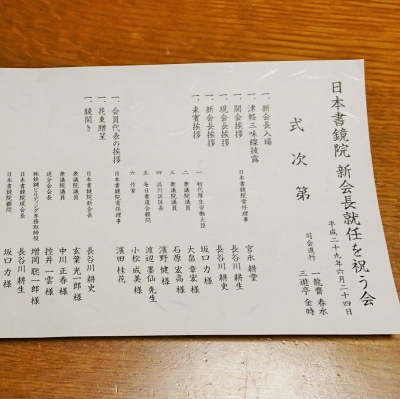 日本書鏡院 新会長就任を祝う会
平成二十九年六月二十四日
司会進行 一龍齋 春水
三遊亭 金時
式次第
一、新会長入場
一、津軽三味線披露
一、開会挨拶 日本書鏡院常任理事 宮永 耕堂
一、現会長挨拶 長谷川 耕生
一、新会長挨拶 長谷川 耕史
一、来賓挨拶 一 初代厚生労働大臣 坂口 力 様
二 衆議院議員 大畠 章宏 様
三 衆議院議員 石原 宏高 様
四 品川区区長 濱野 健 様
五 毎日書道会顧問 渡辺 墨仙 先生
六 作家 小松 成美 様
一、会員代表の挨拶 日本書鏡院常任理事 濱田 桂花
一、花束贈呈
一、鏡開き 日本書鏡院新会長 長谷川 耕史
衆議院議員 玄葉 光一郎 様
衆議院議員 中川 正春 様
追分会会長 控井 一雲 様
㈱鉄鋼ビルディング専務取締役 増岡 聡一郎 様
日本書鏡院現会長 長谷川 耕生
日本書鏡院顧問 坂口 力 様